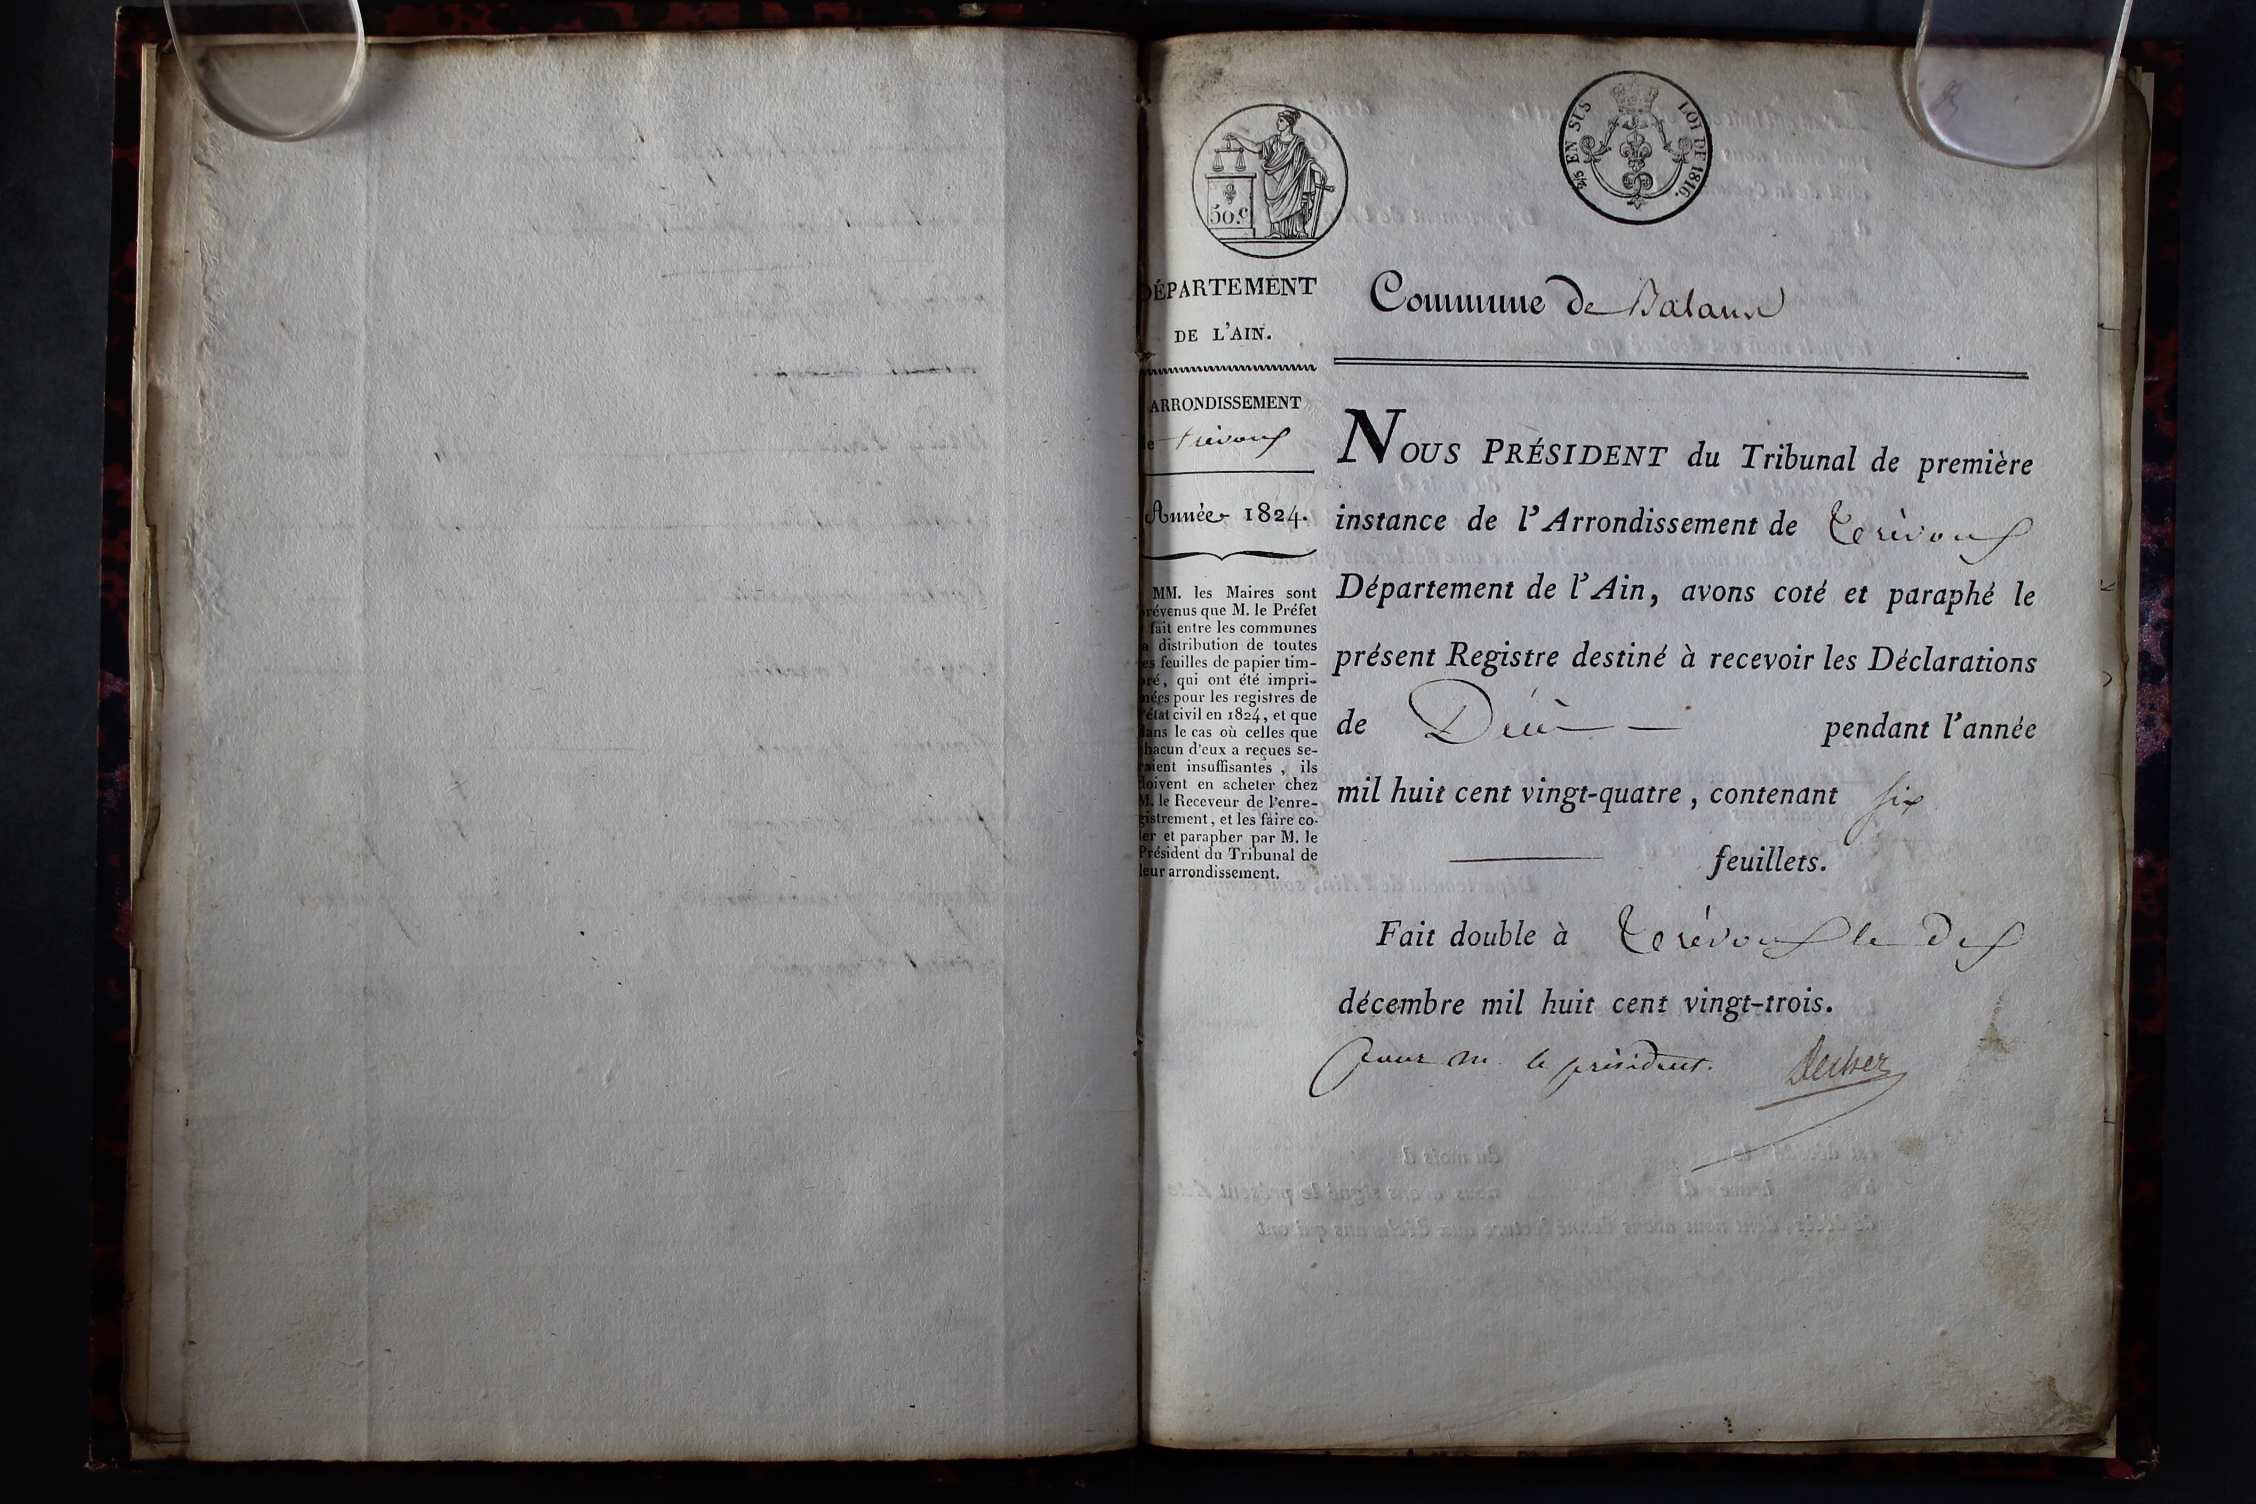 50.c
2/5 EN SUS
LOI DE 1816.
DÉPARTEMENT
DE L'AIN.
ARRONDISSEMENT
de trévoux
Année 1824.
MM. les Maires sont
prévenus que M. le Préfet
fait entre les communes
la distribution de toutes
les feuilles de papier tim-
bré, qui ont été impri-
mées pour les registres de
l'état civil en 1824, et que
dans le cas où celles que
chacun d'eux a reçues se-
raient insuffisantes, ils
doivent en acheter chez
M. le Receveur de l'enre-
gistrement, et les faire co-
ter et parapher par M. le
Président du Tribunal de
leur arrondissement.
Commune de Balan
NOUS PRÉSIDENT du Tribunal de première
instance de l'Arrondissement de Trévoux
Département de l'Ain, avons coté et paraphé le
présent Registre destiné à recevoir les Déclarations
de Décès pendant l'année
mil huit cent vingt-quatre, contenant six
feuillets.
Fait double à Trévoux le dix
décembre mil huit cent vingt-trois.
pour m. le président.